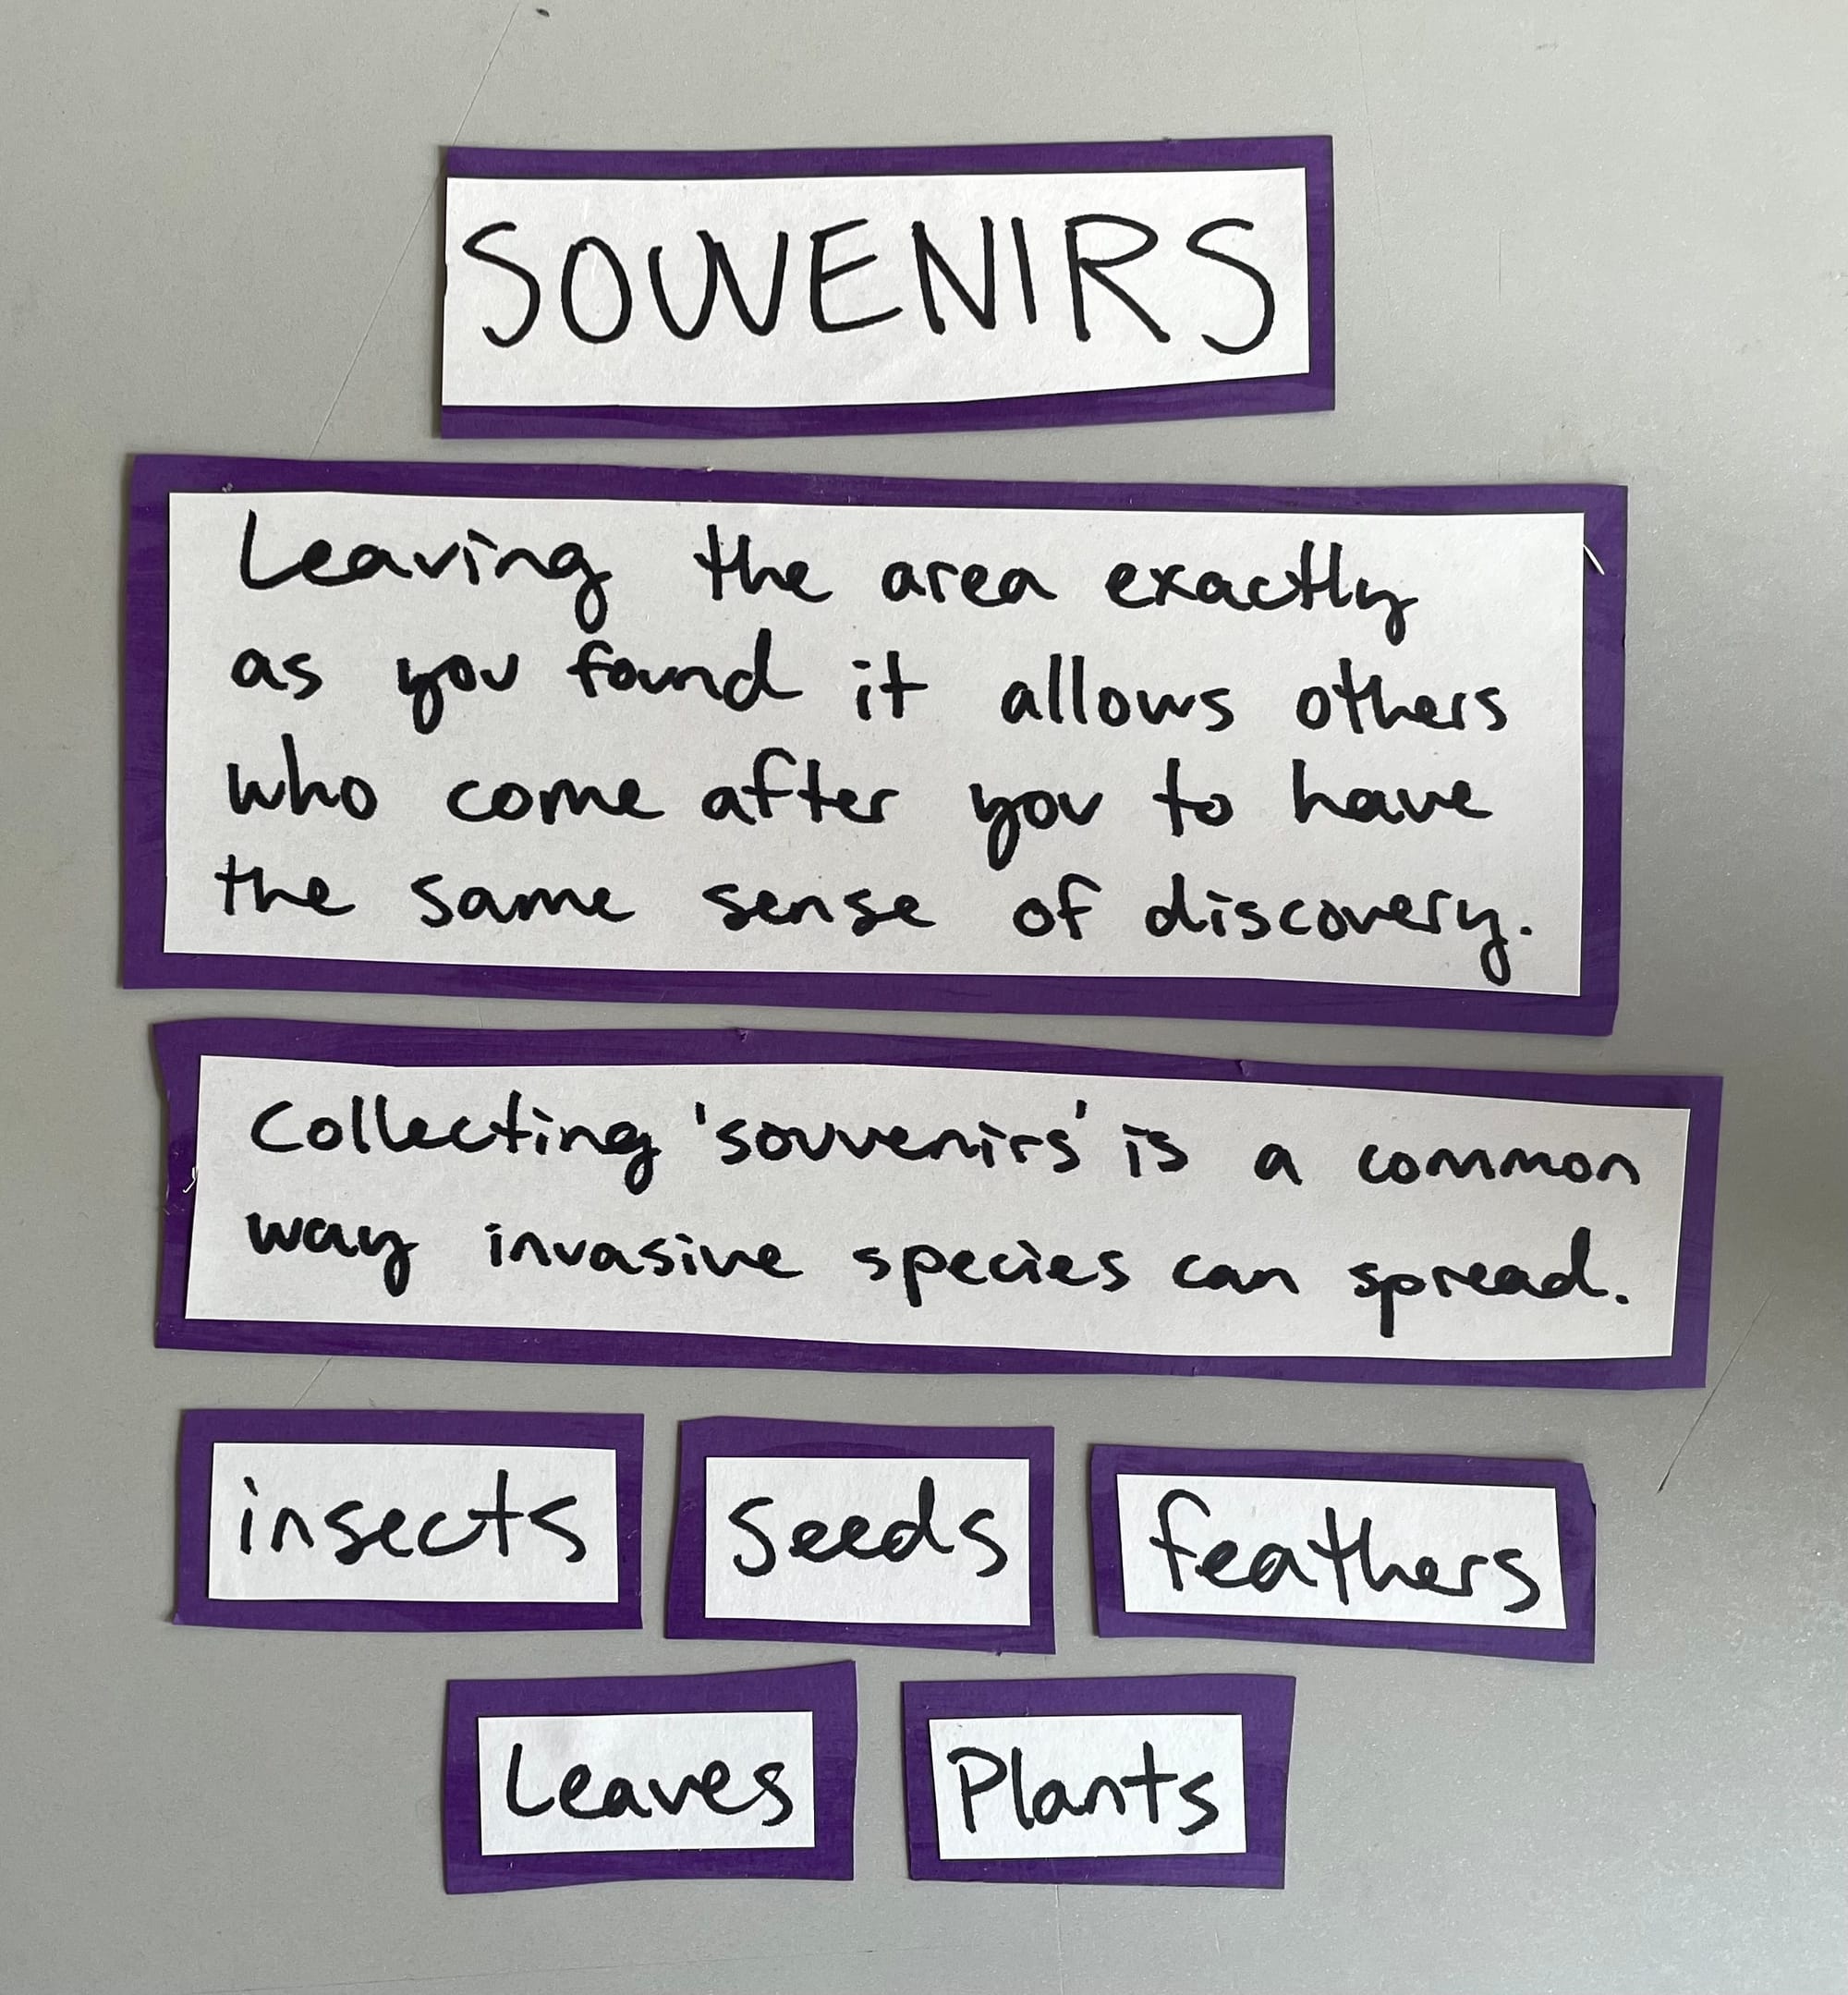 SOUVENIRS
Leaving the area exactly
as you found it allows others
who come after you to have
the same sense of discovery.
Collecting 'souvenirs' is a common
way invasive species can spread.
insects seeds feathers
Leaves Plants